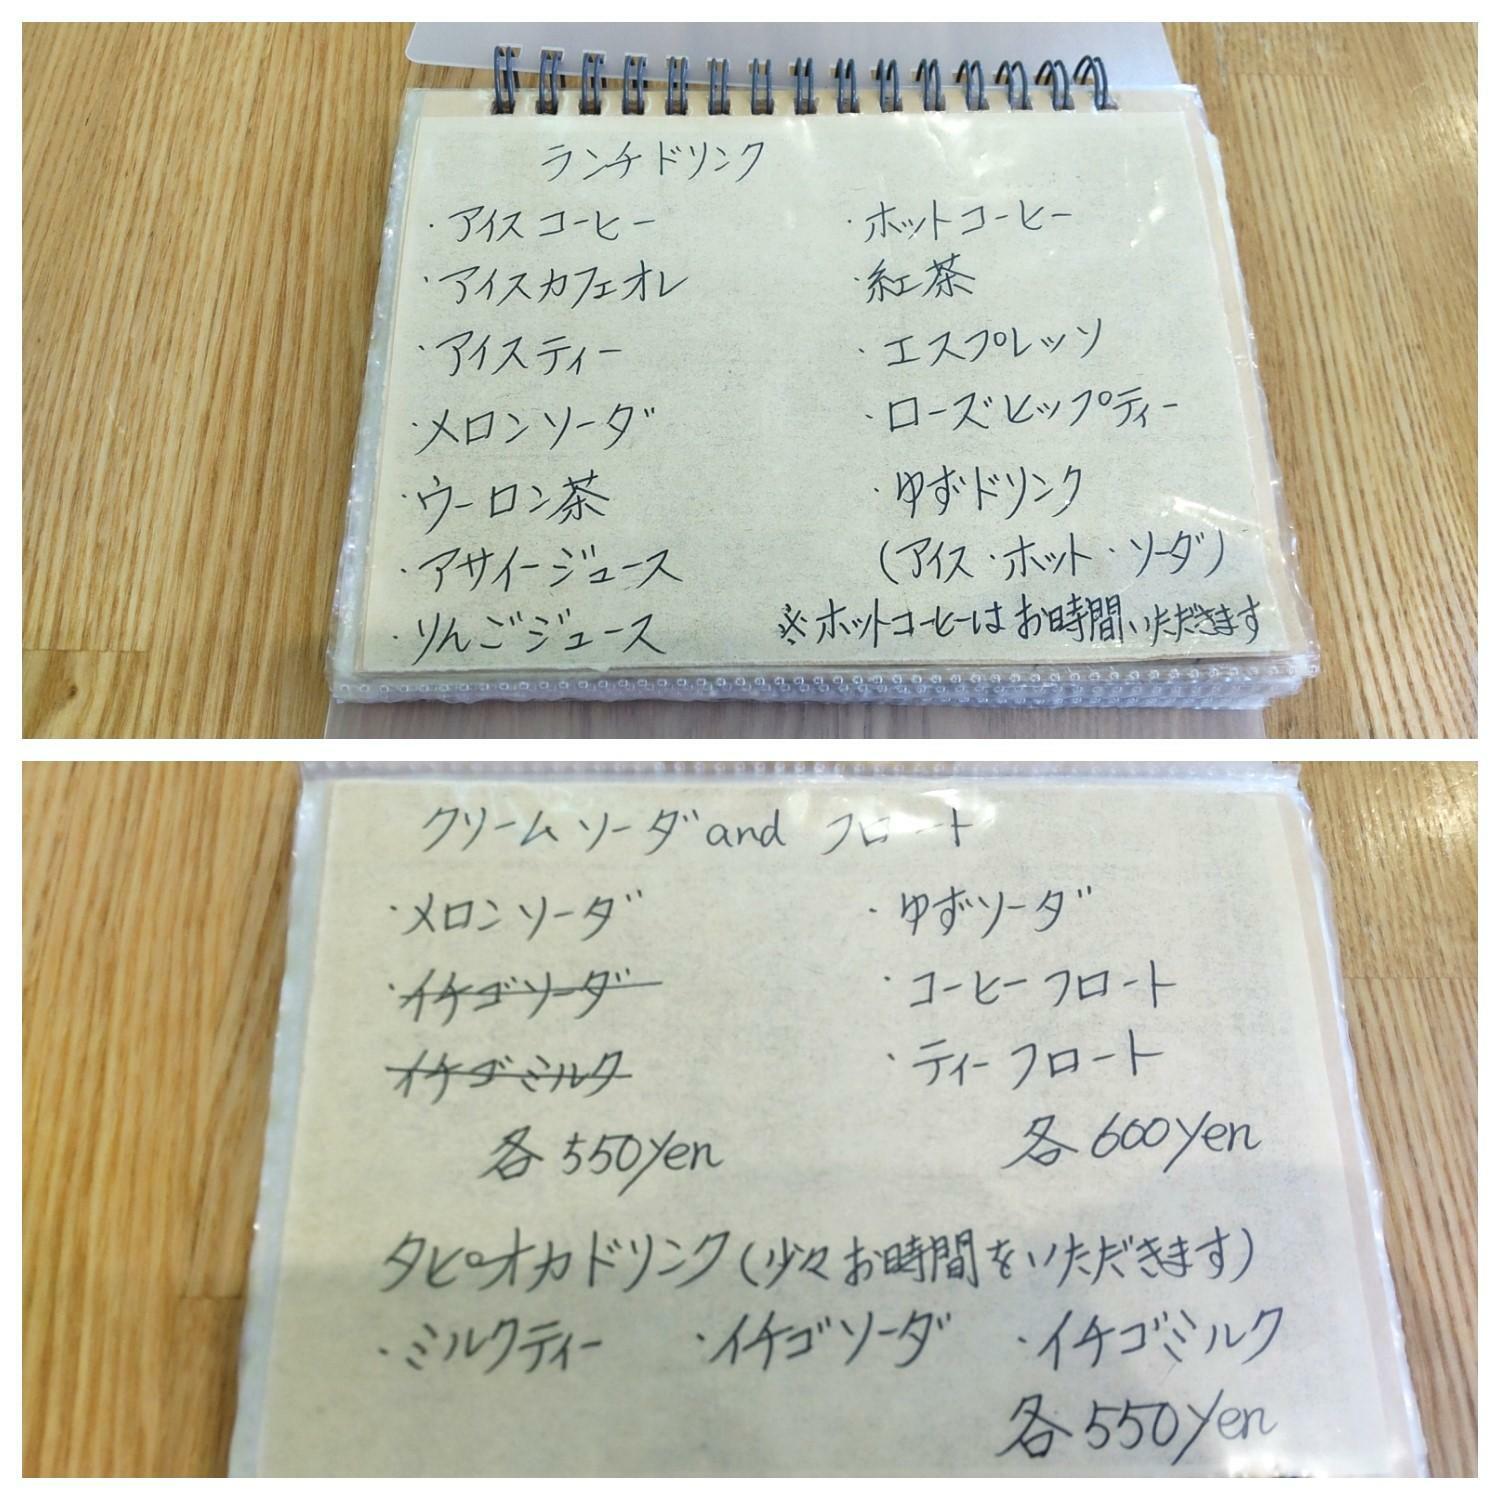 ランチドリンク
・アイスコーヒー
・アイスカフェオレ
・アイスティー
・メロンソーダ
・ウーロン茶
・アサイージュース
・りんごジュース
・ホットコーヒー
・紅茶
・エスプレッソ
・ローズヒップティー
・ゆずドリンク
(アイス・ホット・ソーダ)
※ホットコーヒーはお時間いただきます
クリームソーダand フロート
・メロンソーダ
・イチゴソーダ
イチゴミルク
各550yen
・ゆずソーダ
・コーヒーフロート
・ティーフロート
各600yen
タピオカドリンク(少々お時間をいただきます)
・ミルクティー ・イチゴソーダ ・イチゴミルク
各550yen